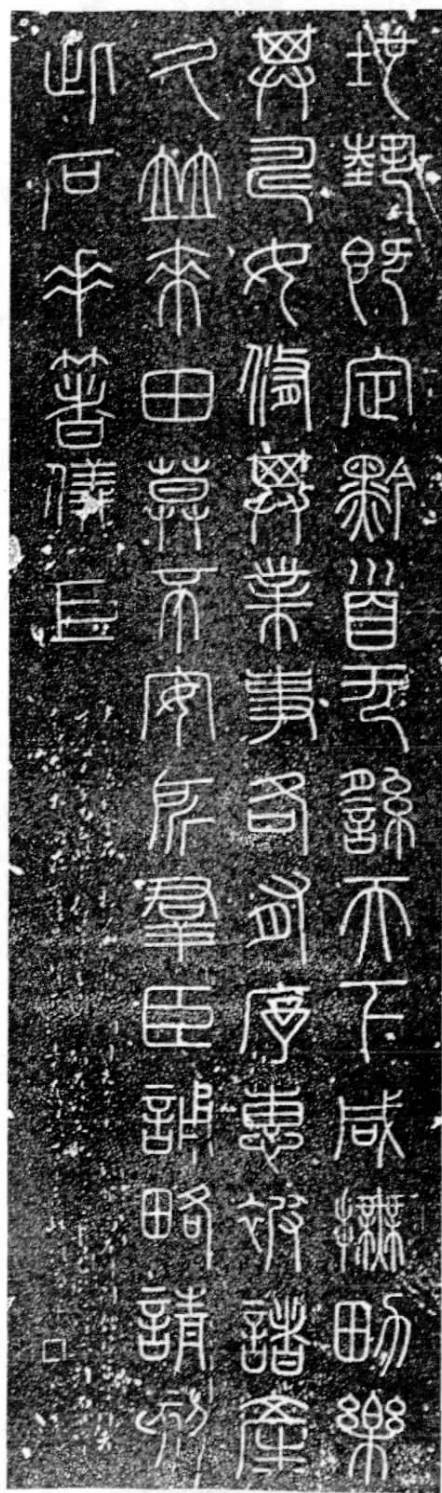 地埶既定黔首无繇天下咸撫男樂
其疇女修其業事各有序惠被諸產
久竝來田莫不安所羣臣誦略請刻
此石垂著儀巨